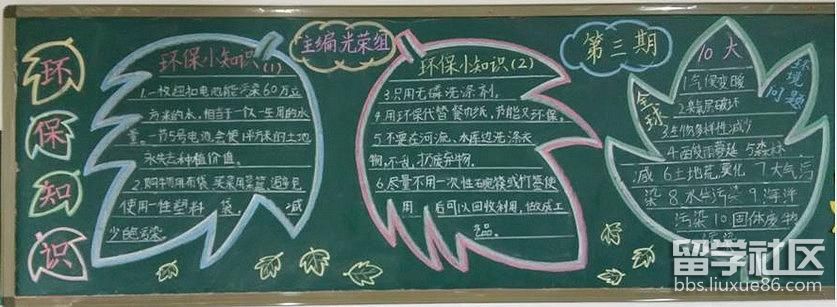 环
保
知
识
环保小知识(1)
1.一枚纽扣电池能污染60万立
方米的水,相当于一个人一生用的水
量。一节5号电池会使1平方米的土地
永失去种植价值。
2.购物用布袋 买菜用菜篮
使用一性塑料袋。减
少白色污染。
主编光荣组
环保小知识(2)
3.只用无磷洗涤剂。
4.用环保代替餐巾纸,节能又环保。
5.不要在河流、水库边洗涤衣
物,不乱扔废弃物。
6.尽量不用一次性石碗筷或打签使
用后可以回收利用,做成工
艺品。
第三期
全球
10大
环境
问题
1气候变暖
2臭氧层破坏
3生物多样性减少
4酸雨蔓延 5森林
减 6土地荒漠化 7大气污
染 8水体污染 9海洋
污染 10固体废物
污染
留学社区
bbs.liuxue86.com